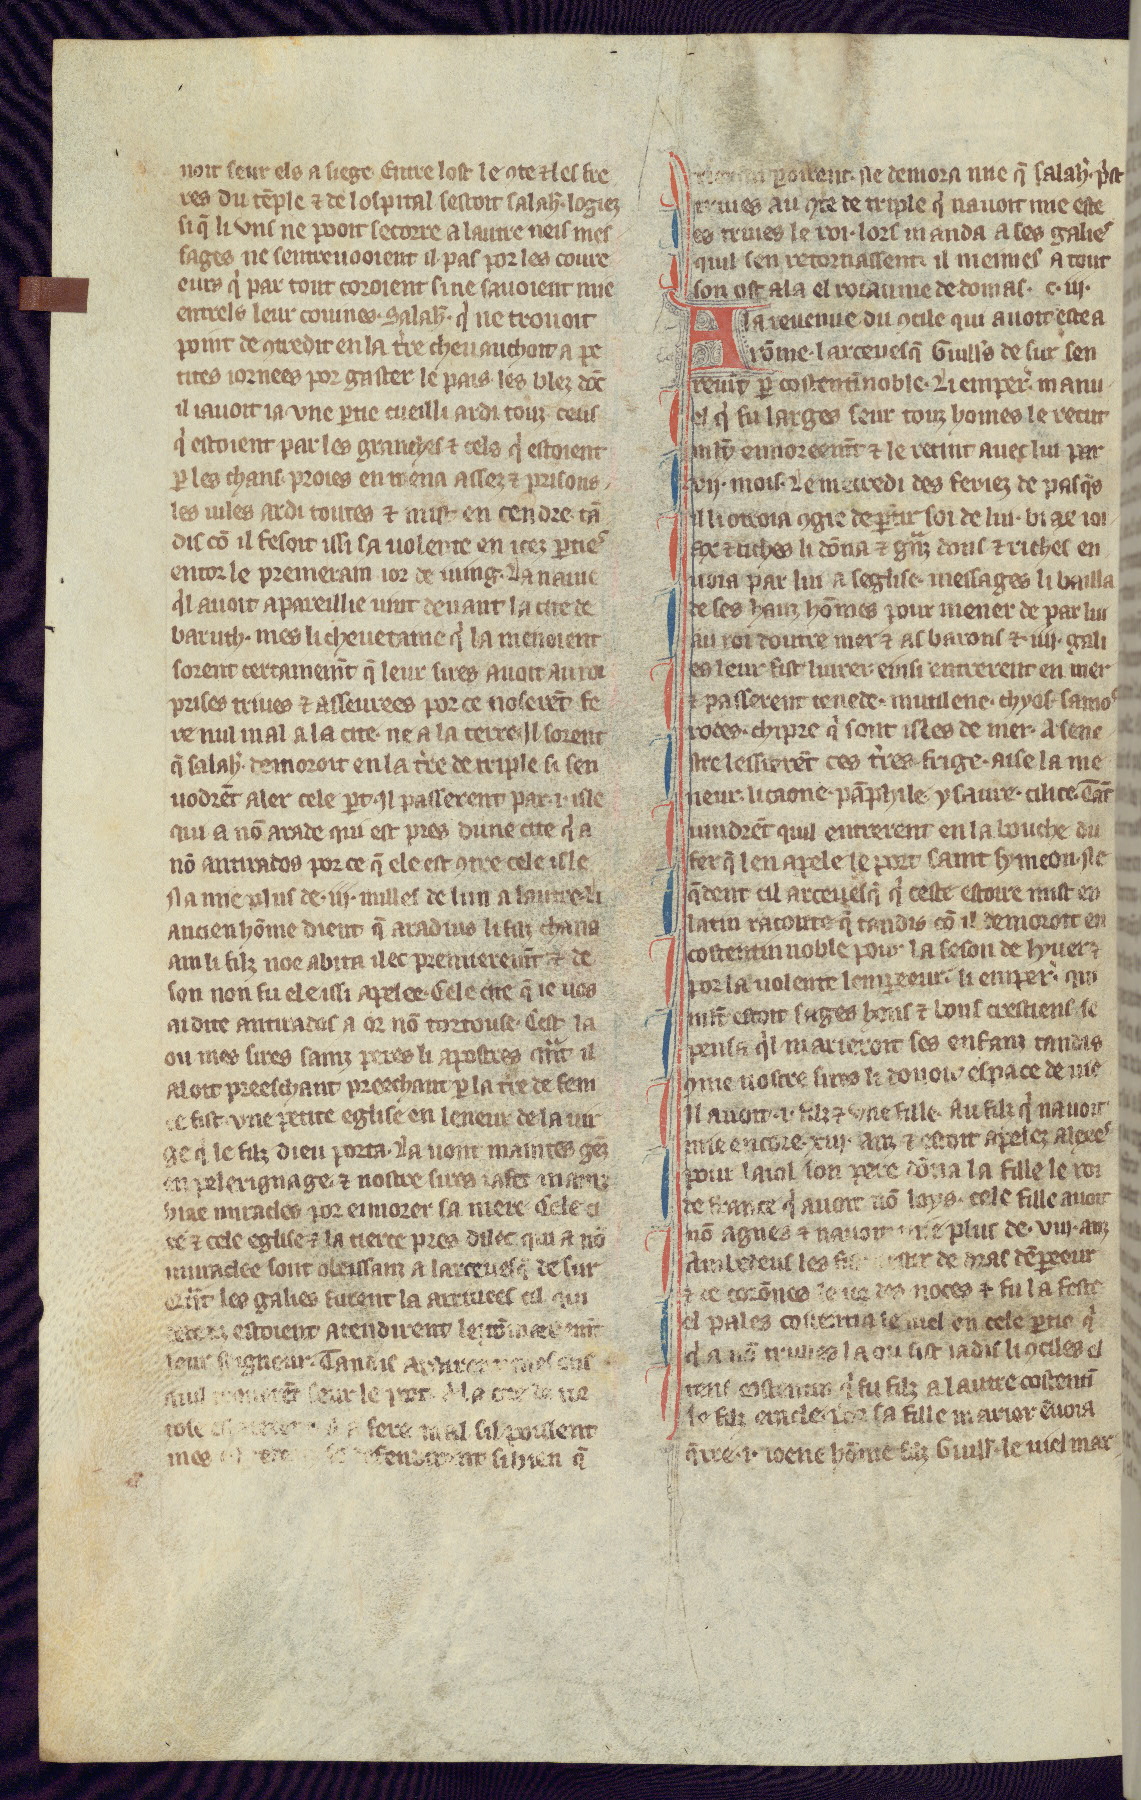 noit seur els a siege. Entre lost le ꝯte ⁊ les fre
res du tẽple ⁊ de lospital sestoit salah̃. logiez
si q̃ li vns ne pooit secorre a lautre neis mes
sages ne sentreuooient il pas por les coure
eurs q̉ par tout coroient si ne sauoient mie
entrels leur couines. Salah̃. q̉ ne trouoit
point de ꝯtredit en la t̉re cheuauchoit a pe
tites iornees por gaster le pais. les blez dõt
il iauoit ia vne ꝑtie cueilli ardi touz ceus
q̉ estoient par les granches ⁊ cels q̉ estoient
ꝑ les chans. proies en mena assez ⁊ prisons.
les uiles ardi toutes ⁊ mist en cendre. tã
dis cõ il fesoit issi sa uolente en icez ꝑties
entor le premerain ior de iuing. La nauie
q̉l auoit apareillie uint deuant la cite de
baruth. mes li cheuetaine q̉ la menoient
sorent certainem̃t q̃ leur sires auoit au roi
prises triues ⁊ asseurees por ce noserẽt fe
re nul mal a la cite. ne a la terre. Il sorent
q̃ salah̃. demoroit en la t̉re de triple si sen
uodrẽt aler cele ꝑt. Il passerent par .i. isle
qui a nõ arade qui est pres dune cite q̉ a
nõ antirados por ce q̃ ele est ꝯtre cele isle
Na mie plus de .iij. milles de lun a lautre. li
ancien hõme dient q̃ aradius li filz chana
am li filz noe abita ilec premierem̃t ⁊ de
son non fu ele issi apelee. Cele cite q̃ ie uos
ai dite antirados a or nõ tortouse. Cest la
ou mes sires sainz peres li apostres q̃nt il
aloit preeschant ꝑ la t̉re de feni
ce fist vne petite eglise en leneur de la uir
ge q̉ le filz dieu porta. La uont maintes gẽz
en pelerignage. ⁊ nostre sires iafet mainz
biax miracles por ennorer sa mere. Cele ci
te ⁊ cele eglise ⁊ la tierce pres dilec qui a nõ
miraclee sont obeissanz a larceuesq̃ de sur
Q̃nt les galies furent la arriuees cil qui
estoient atendirent le
leur seigneur. Tandis
seur le port
fere mal sil poissent
mes si bien q̃
poirent. Ne demora mie q̃ salah̃. p̉st
triues au ꝯte de triple q̉ nauoit mie este
es triues le roi. lors manda a ses galies
quil sen retornassent. il meimes a tout
son ost ala el roiaume de domas. c. iij.
A la reuenue du ꝯcile qui auoit este a
rõme. larceuesq̃ Guill's de sur sen
reuĩt ꝑ costentinnoble. Li emper̉. manu
el q̉ fu larges seur touz homes le recut
mlt̃ ennoreem̃t ⁊ le retint auec lui par
vij. mois. Le mecredi des feriez de pasq̃s
il li otroia ꝯgie de ꝑtir soi de lui. biax ioi
ax ⁊ riches li dõna ⁊ g̃nz dons ⁊ riches en
uoia par lui a seglise. messages li bailla
de ses hauz hõmes pour mener de par lui
au roi doutre mer ⁊ as barons ⁊ .iiij. gali
es leur fist liurer. einsi entrerent en mer
⁊ passerent tenede. mutilene. chyos. samos
rodes. chipre q̉ sont isles de mer. A sene
stre lessierẽt ces t̉res. frige. aise la me
neur. licaone. pãphile. ysaure. cilice. Tãt
uindrẽt quil entrerent en la bouche du
fer q̃ len apele le port saint hymeon. Ne
q̃dent cil arceuesq̃ q̉ ceste estoire mist en
latin raconte q̃ tandis cõ il demoroit en
costentinnoble pour la seson de hyuer ⁊
por la uolente lempeeour. li emper̉. qui
mlt̃ estoit sages hons ⁊ bons crestiens. se
pensa q̉l marieroit ses enfanz tandis
ꝯme nostre sires li donoit espace de uie
Il auoit .i. filz ⁊ vne fille. Au filz q̉ nauoit
mie encore .xiij. anz ⁊ estoit apelez alexes
pour laiol son pere dõna la fille le roi
de france q̉ auoit nõ loys. cele fille auoit
nõ agnes ⁊ nauoit mie plus de .viij. anz
Ambedeus les fist uestir de dras dẽpeeur
⁊ ce corõnes le ior des noces ⁊ fu la feste
el pales costentin le uiel en cele ꝑtie q̉
q̉ a nõ trulles la ou fist iadis li ꝯciles el
tens costentin q̉ fu filz a lautre costentĩ
le filz eracle. Por sa fille marier ẽuoia
q̃rre .i. ioene hõme filz Guill'. le uiel mar